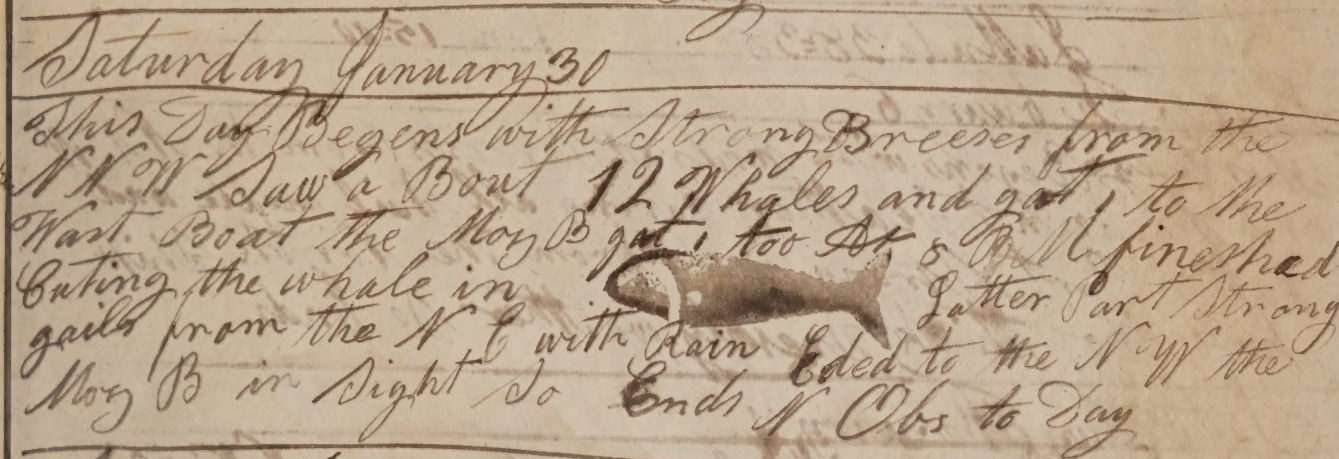 Saturday January 30
This Day Begens with Strong Breeses from the
N N W Saw a Bout 12 Whales and gat 1 to the
Wast. Boat the Mory B gat 1 too At 8 P M fineshed
Cuting the whale in Latter Part Strong
gails from the N E with Rain Eded to the N W the
Mory B in Sight So Ends N Obs to Day